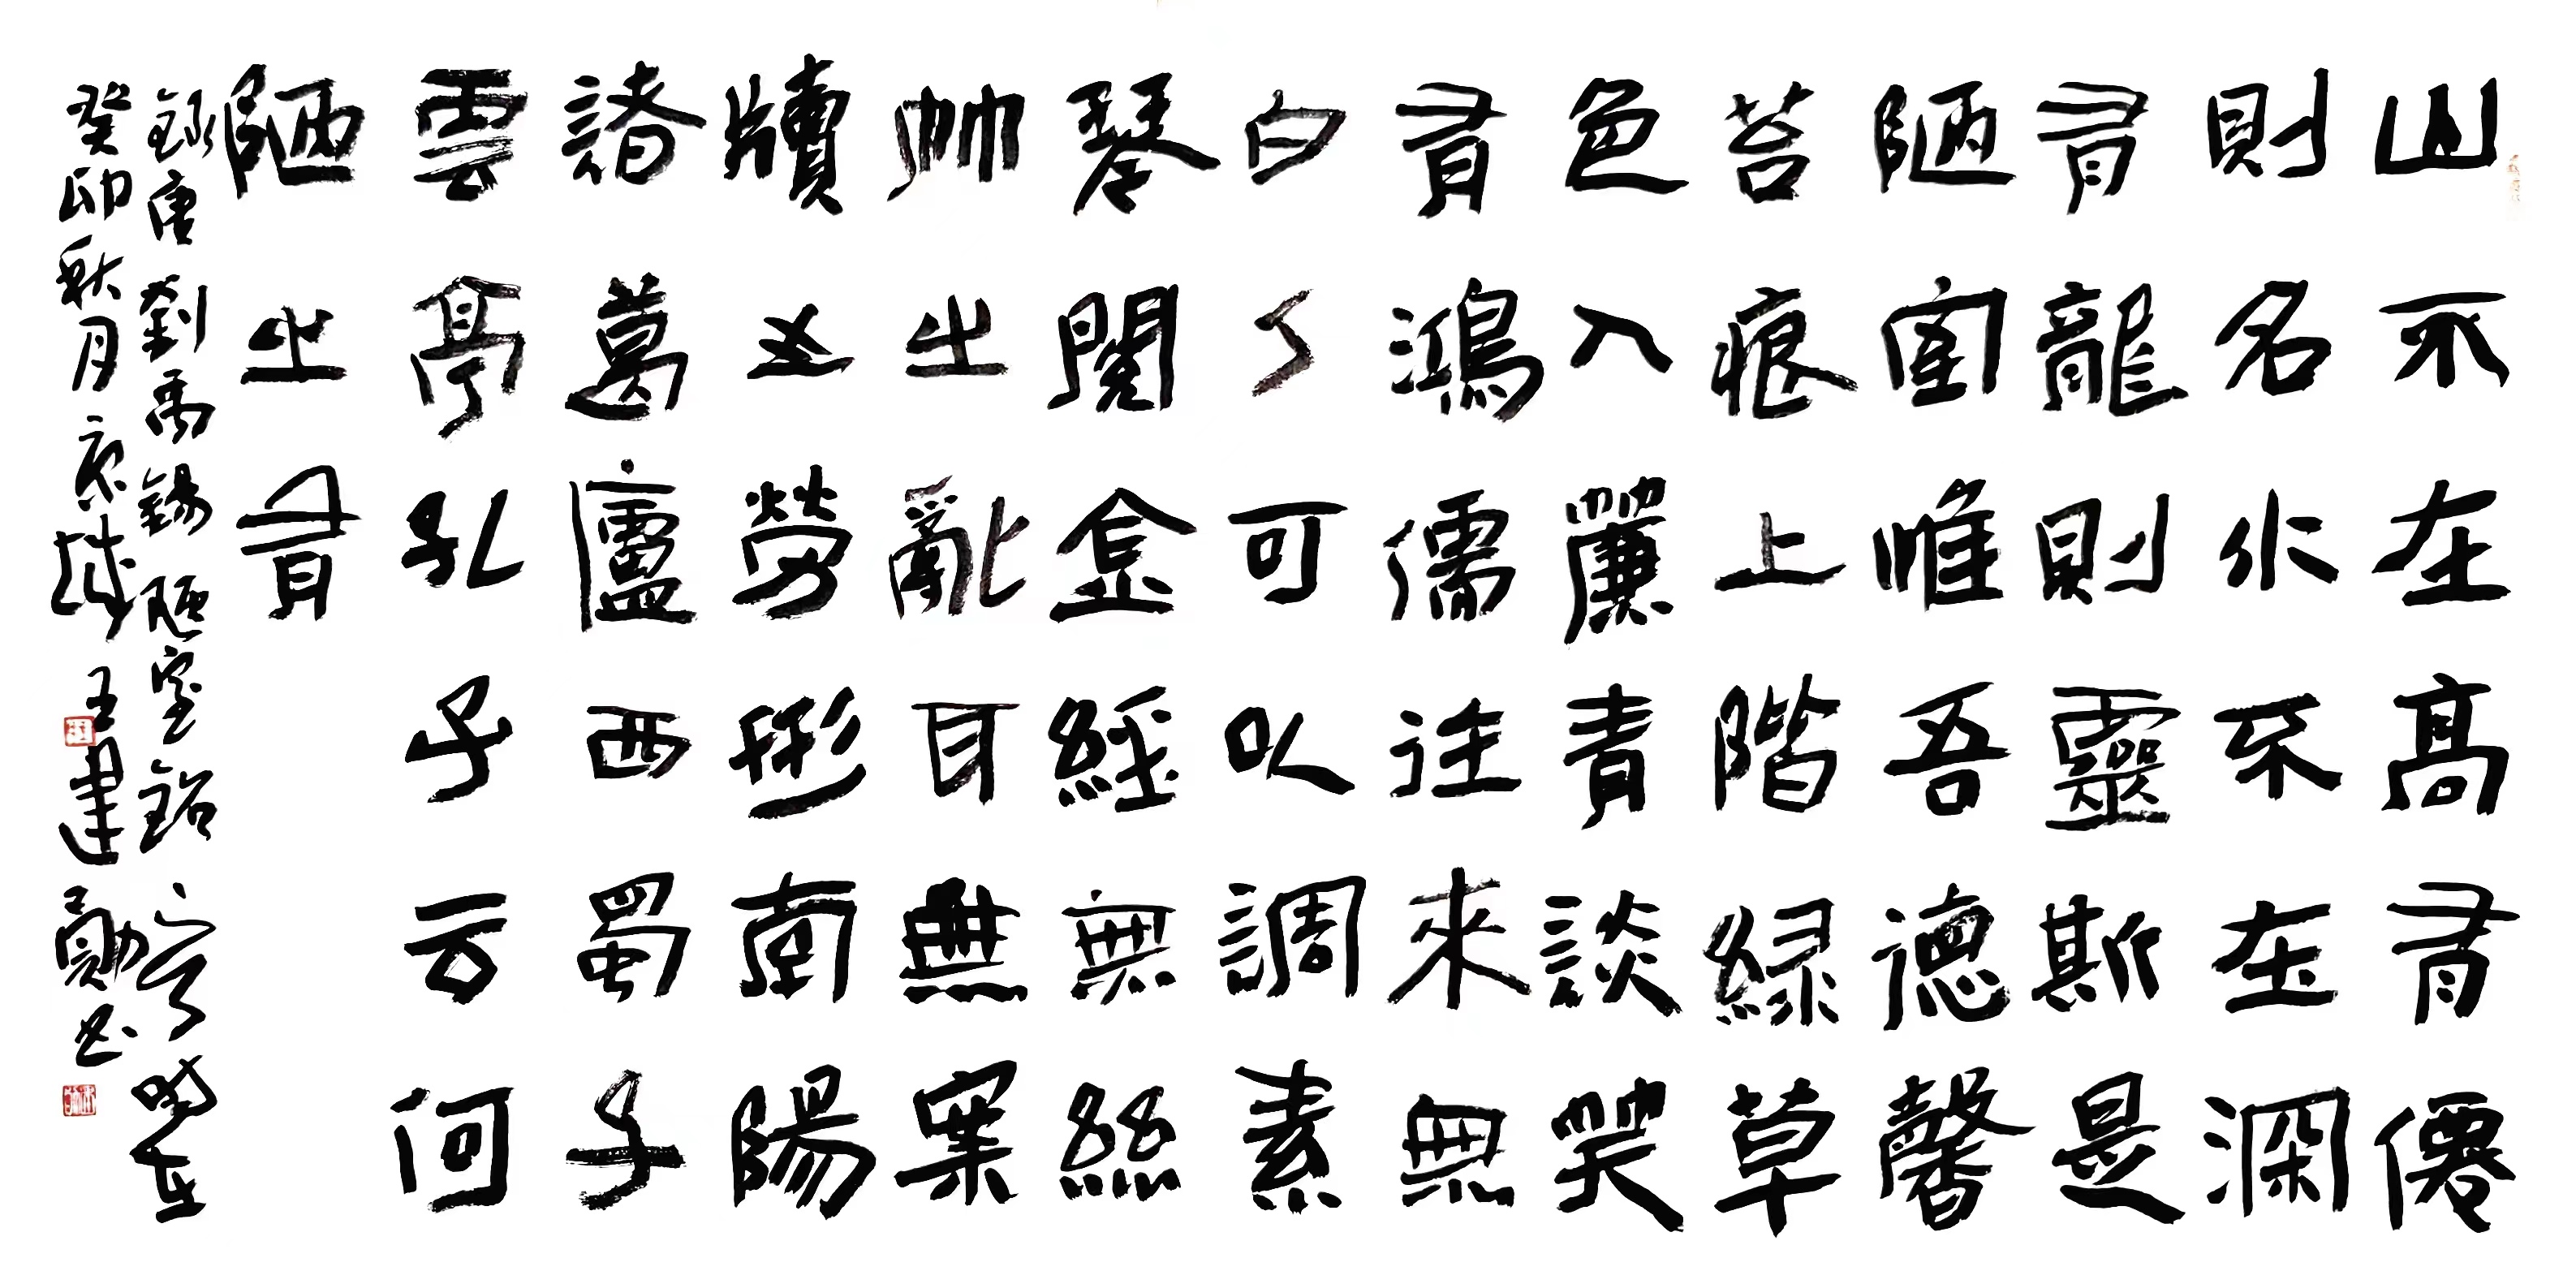 山不在高有僊
則名水不在深
有龍則靈斯是
陋室惟吾德馨
苔痕上階緑草
色入簾青談笑
有鴻儒往來無
白丁可以調素
琴閱金經無絲
竹之亂耳無案
牘之勞形南陽
諸葛廬西蜀子
雲亭孔子云何
陋之有
録唐劉禹錫陋室銘 時在
癸卯秋月京城王建勛書